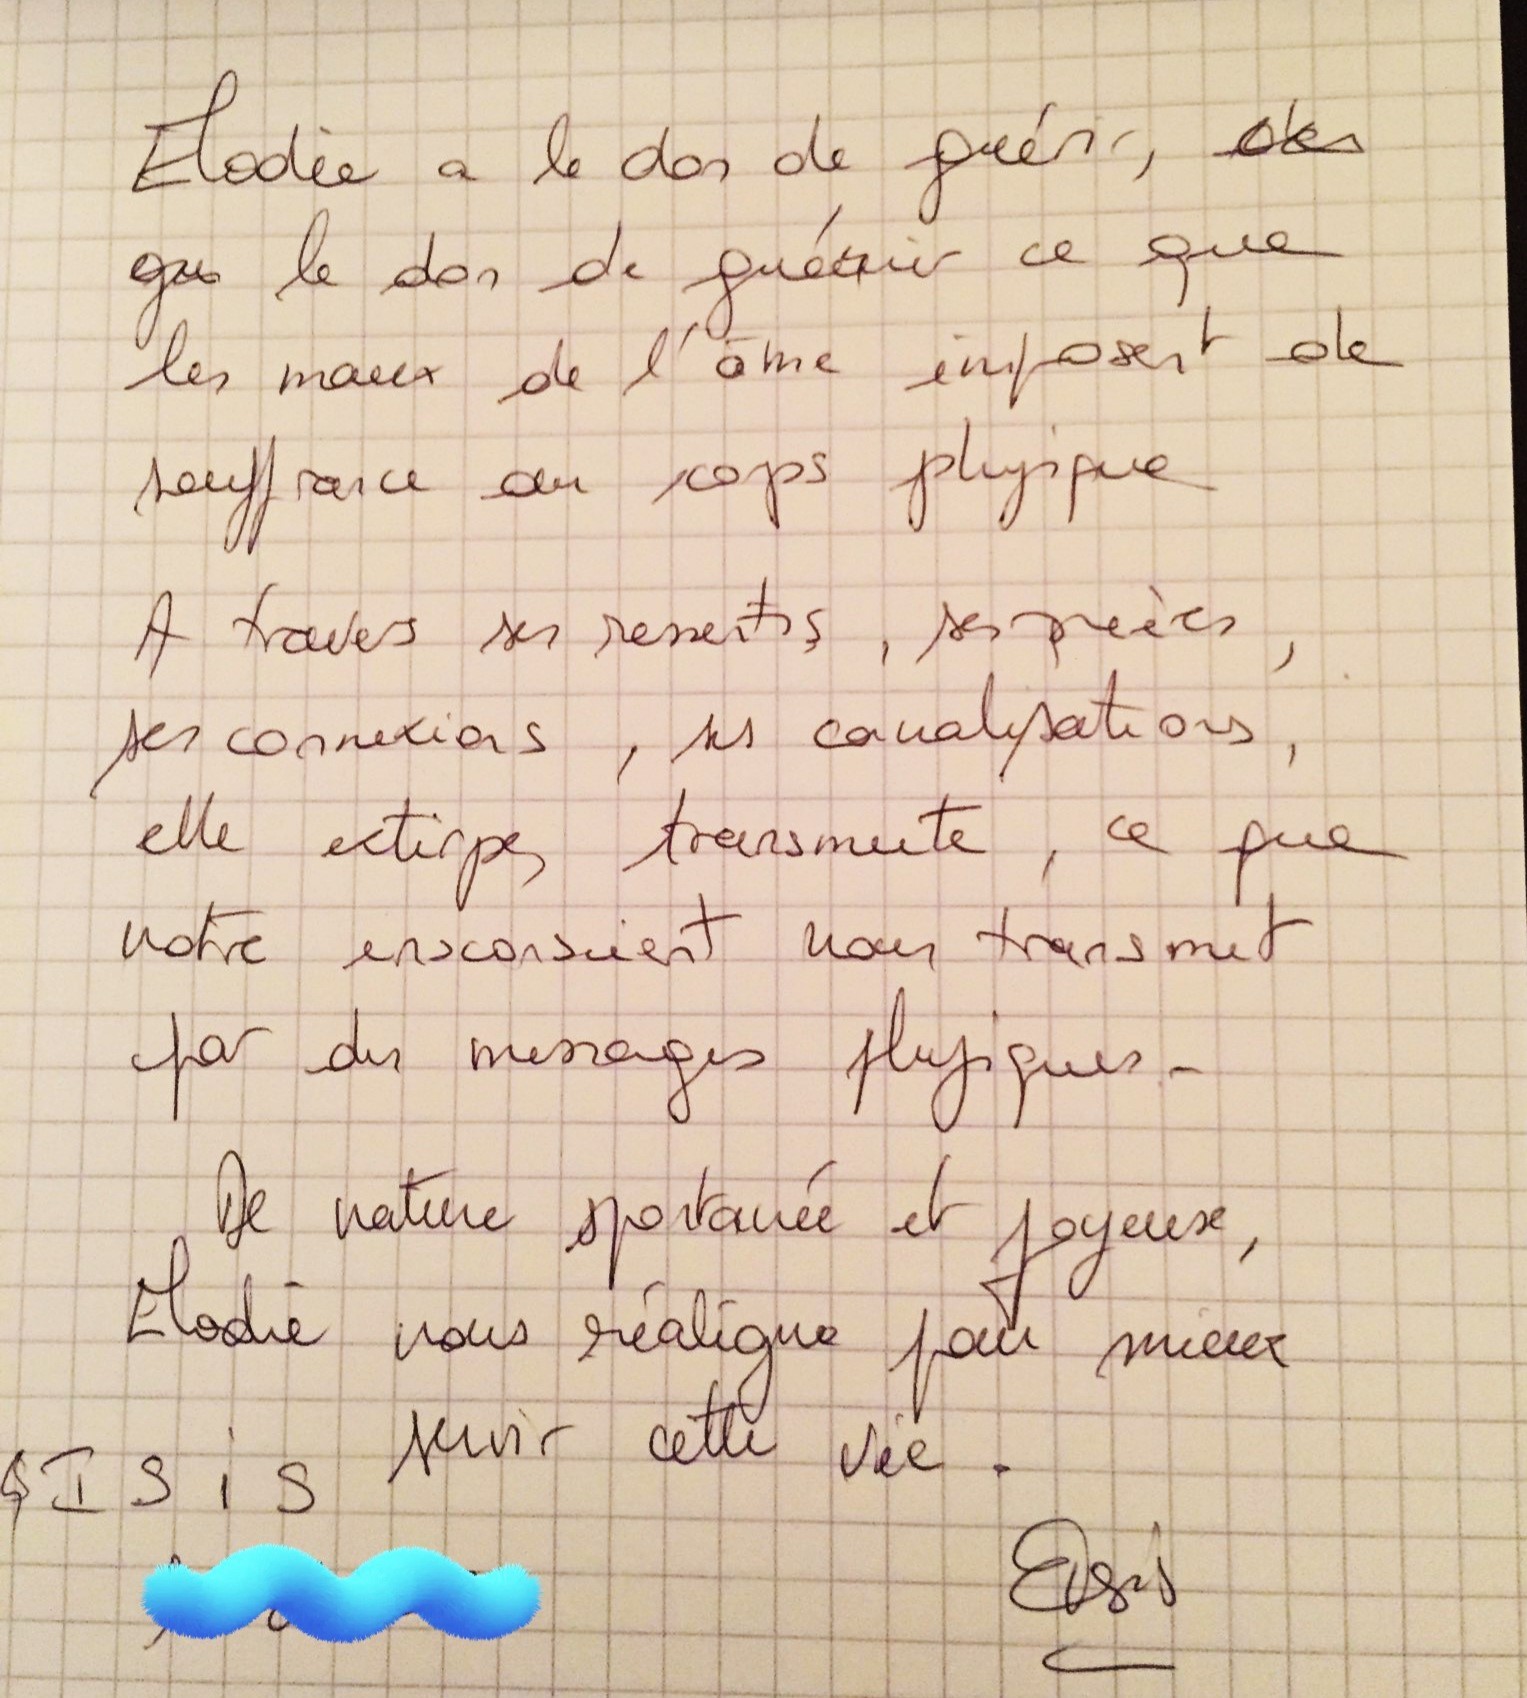 Elodie a le don de guérir,
que le don de guérir ce que
les maux de l'âme imposent de
souffrance au corps physique
A travers ses ressentis, ses prières,
ses connexions, ses canalisations,
elle extirpe, transmute, ce que
notre insconscient nous transmet
par des messages physiques.
De nature spontanée et joyeuse,
Elodie nous réaligne pour mieux
servir cette vie.
Isis